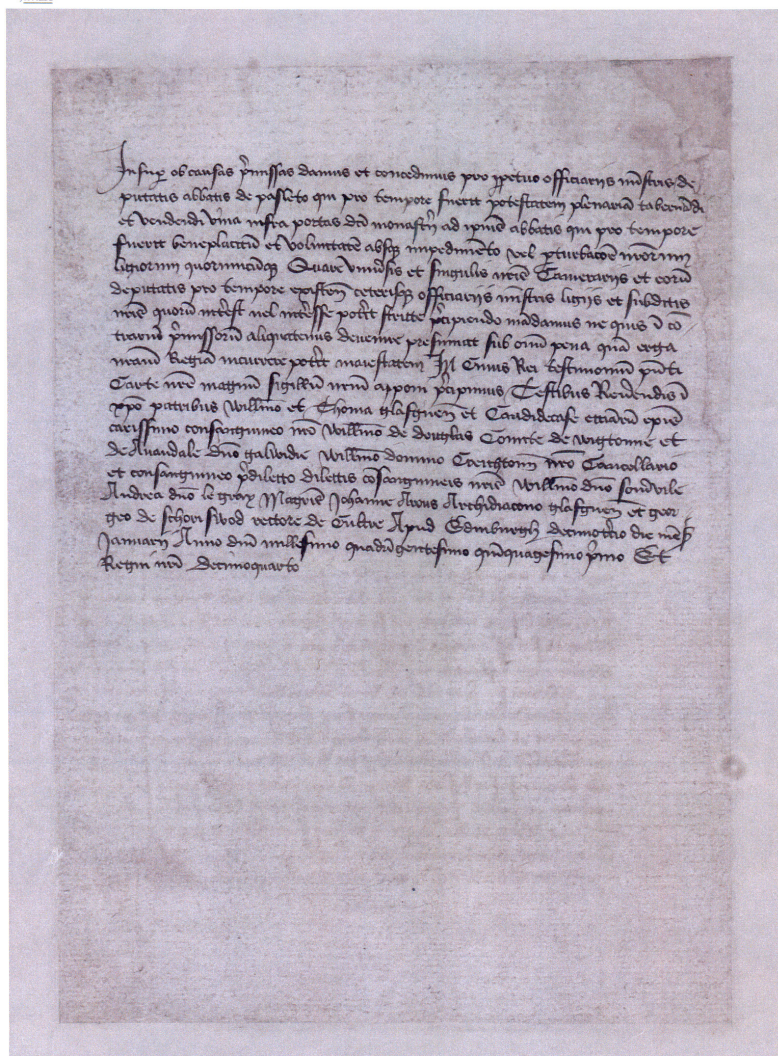 Insup ob causas p̄missas damus et concedimus pro ppetuo officiarijs mīstris de
putatis abbatis de pasleto qui pro tempore fuerit potestatem plenariā tabernādi
et vendendi vina infra portas dc̄i monastīj ad ip̄ius abbatis qui pro tempore
fuerit beneplacitū et voluntatē absqȝ impedimēto vel pturbacōe nr̄orum
ligiorum quorumcūqȝ Quare vniūsis et singulis nr̄is Camerarijs et eorū
deputatis pro tempore existen̄ ceterisqȝ officiarijs mīstris ligijs et subditis
nr̄is quorū intēst vel intēsse potīt stricte p̄cipiendo mādamus ne quis ī cō
trariū p̄missorū aliquatenus devenire presumat sub om̄i pena quā erga
nr̄am Regiā incurrere potīt maiestatem In Cuius Rei testimoniū pn̄ti
Carte nr̄e magnū sigillū nr̄m apponi p̄cipimus Testibus Reūendis ī
xpō patribus willmō et Thoma glasguen̄ et Candidecase ecc̄iarū ep̄is
carissimo consanguineo nr̄o willmō de douglas Comite de wigtonne et
de Auandale dn̄o galwidie willmō domino Creichtoun̄ nr̄o Cancellario
et consanguineo p̄dilecto dilectis cōsanguineis nr̄is willmō dn̄o somvile
Andrea dn̄o le gray Magr̄is Johanne Arous Archidiacono glasguen̄ et geor
geo de schoriswod rectore de Cultre Apud Edinburgh decimot̄cio die mēs̄
Januarij Anno dn̄i millesimo quadīgentesimo qūiquagesimo p̄mo Et
Regni nr̄i decimoquarto